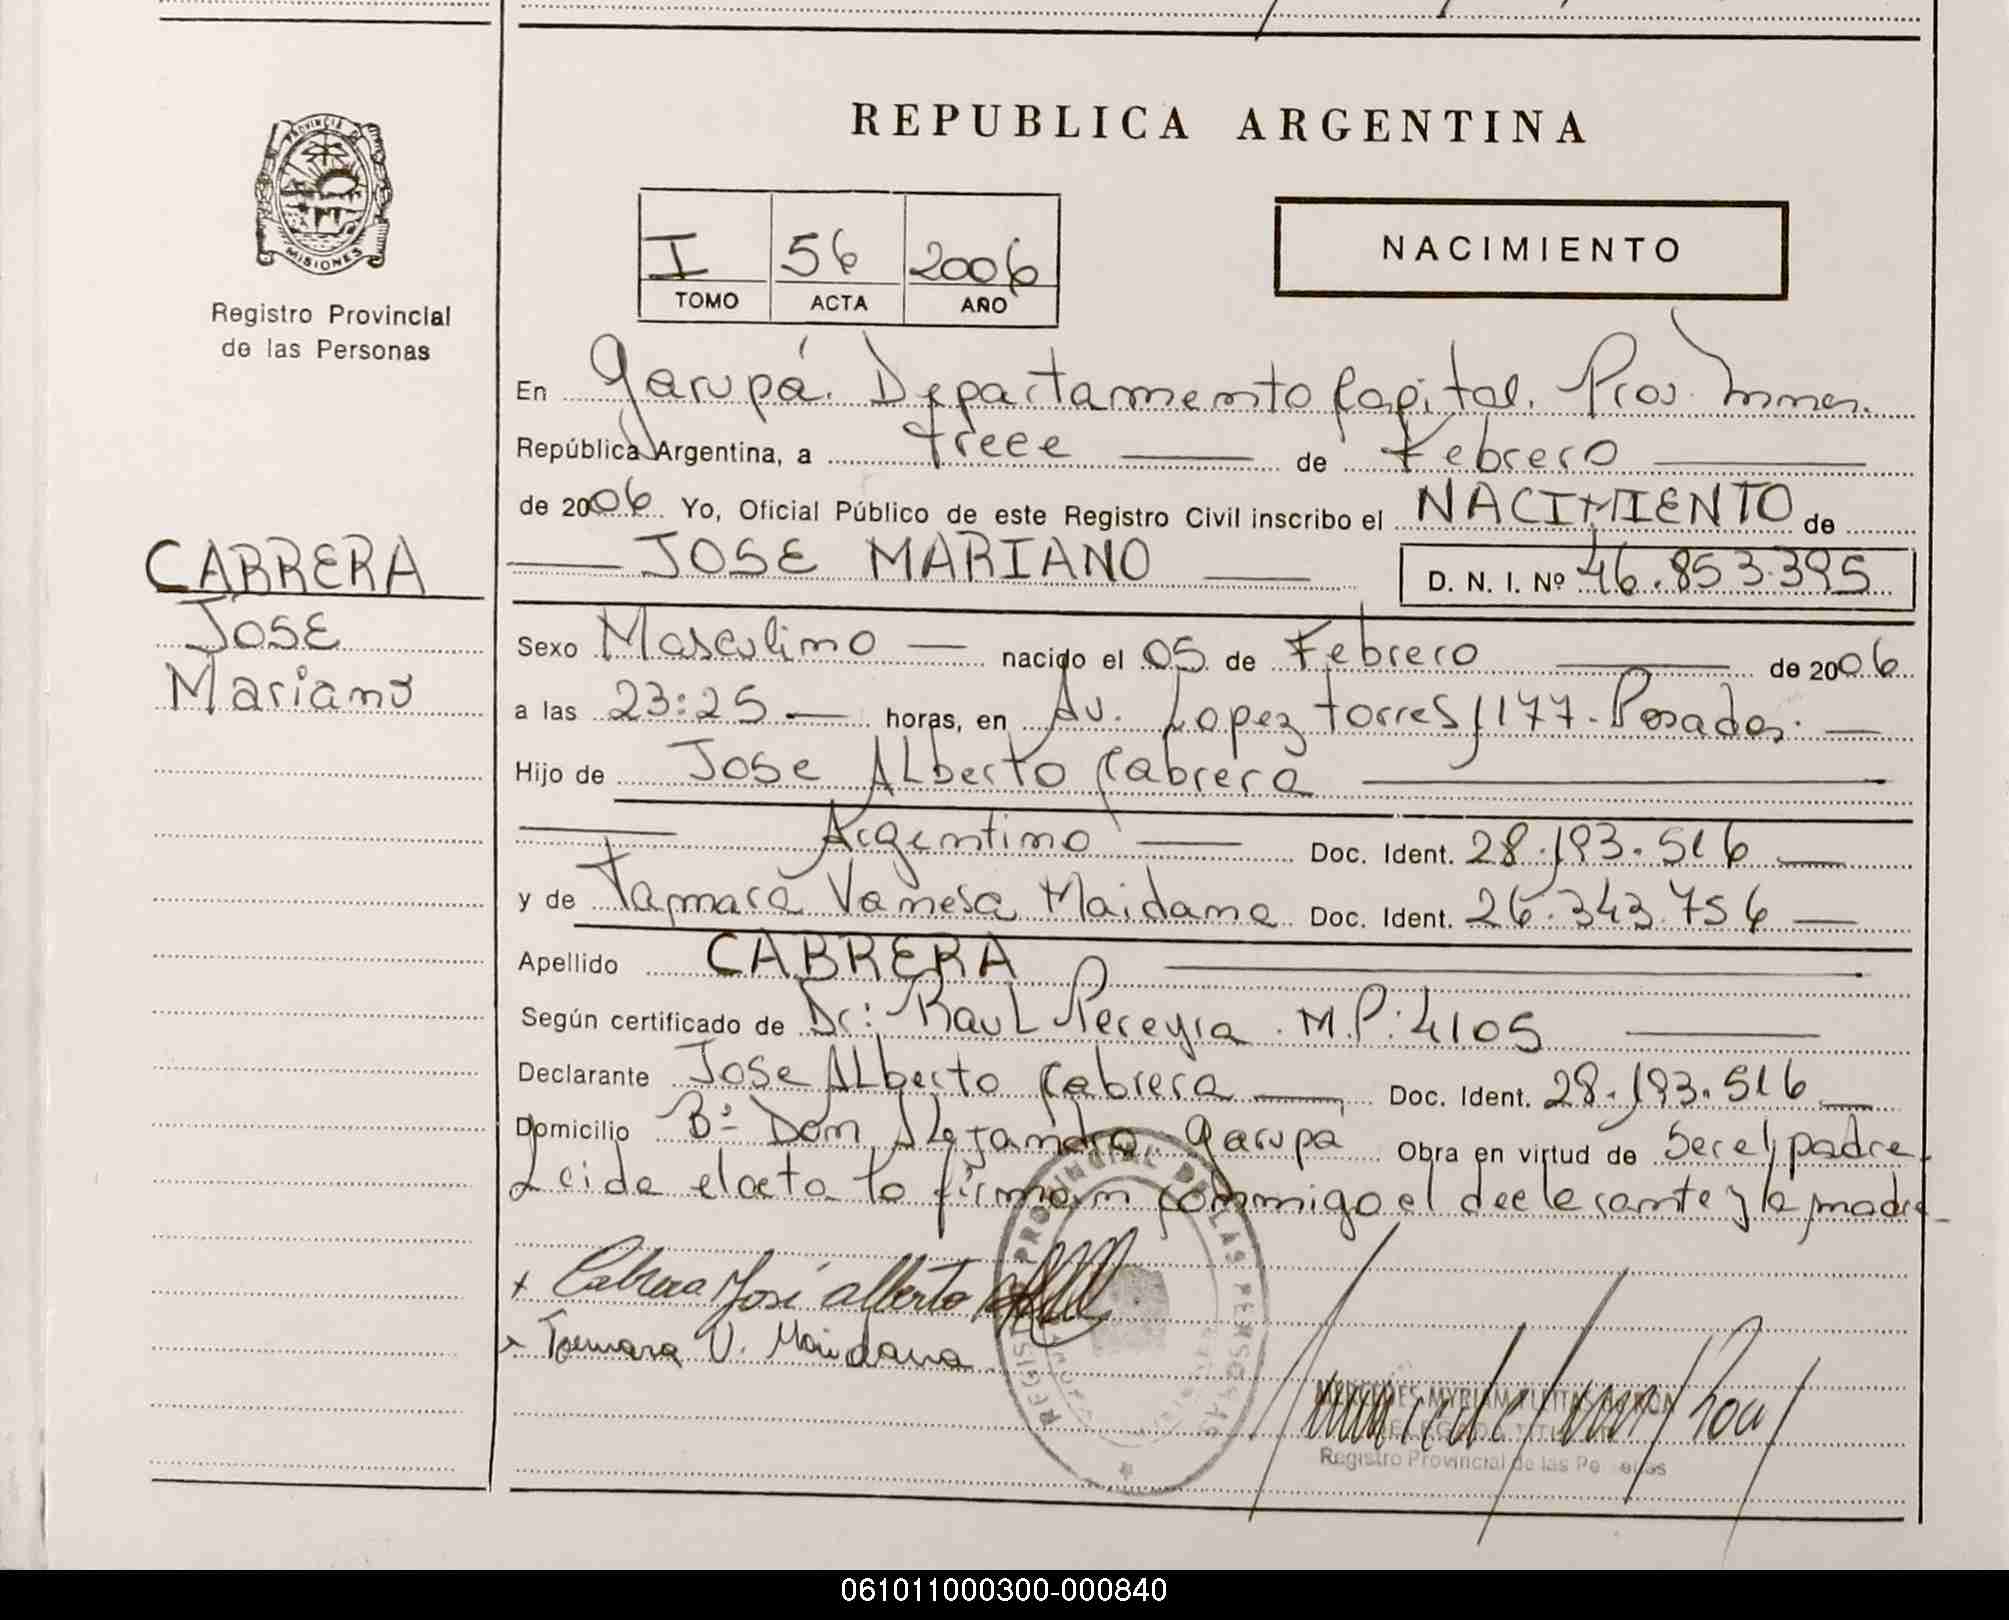 REPUBLICA ARGENTINA
PROVINCIA DE
MISIONES
Registro Provincial
de las Personas
I 56 2006
TOMO ACTA AÑO
NACIMIENTO
CABRERA
Jose
Mariano
En Garupá. Departamento Capital. Prov. Mnes.
República Argentina, a trece de Febrero
de 2006 Yo, Oficial Público de este Registro Civil inscribo el NACIMIENTO de
JOSE MARIANO D. N. I. Nº 46.853.395
Sexo Masculino nacido el 05 de Febrero de 2006
a las 23:25 horas, en Av. Lopez torres 1177. Posadas.
Hijo de Jose Alberto Cabrera
Argentino Doc. Ident. 28.193.516
y de Tamara Vanesa Maidana Doc. Ident. 26.343.756
Apellido CABRERA
Según certificado de Dr: Raul Pereyra. M.P: 4105
Declarante Jose Alberto Cabrera Doc. Ident. 28.193.516
Domicilio Bº Don Alejandro. Garupa Obra en virtud de Ser el padre.
Leida el acta la firman conmigo el declarante y la madre
x Cabrera José alberto
x Tamara V. Maidana
REGISTRO PROVINCIAL DE LAS PERSONAS
Registro Provincial de las Personas
061011000300-000840